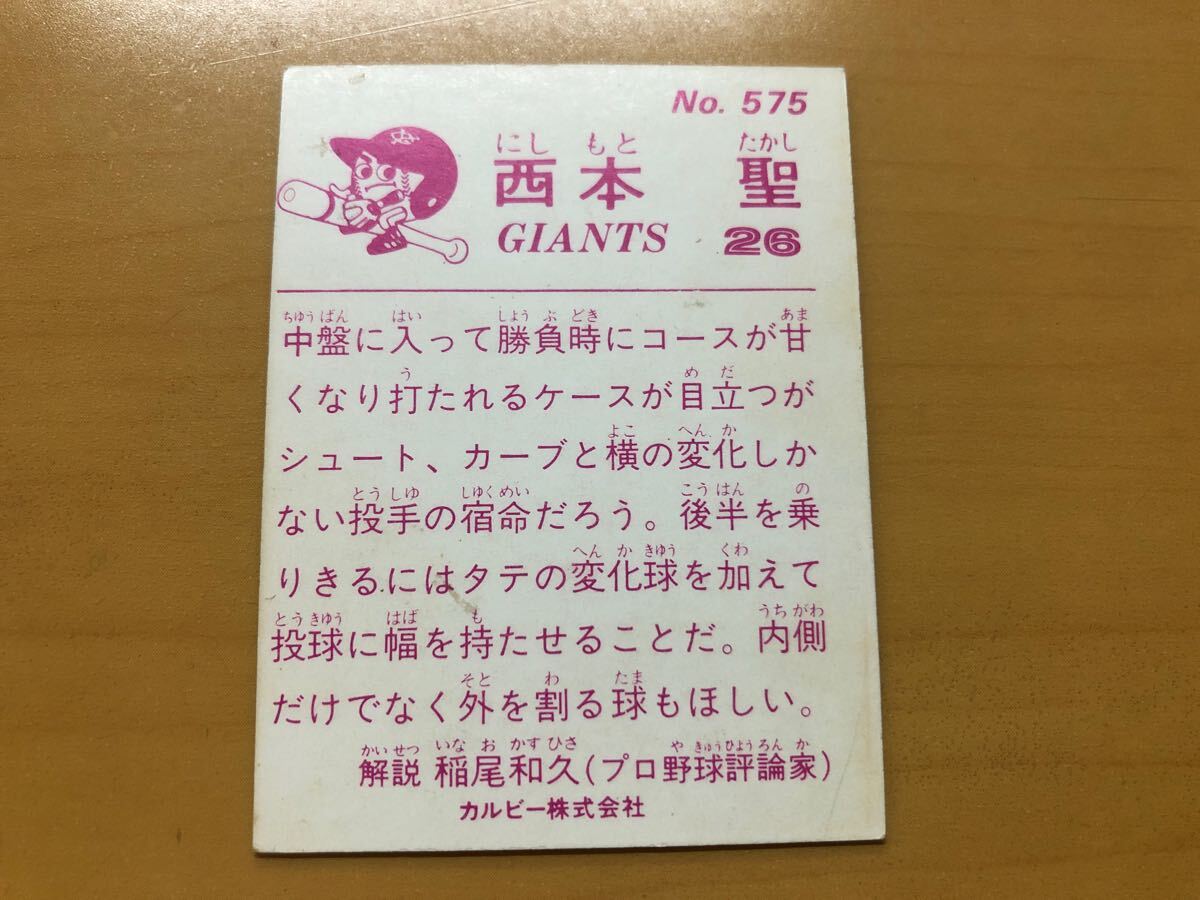 No. 575
にし もと たかし
西本 聖
GIANTS 26
ちゆうばん はい しよう ぶ どき あま
中盤に入って勝負時にコースが甘
う め だ
くなり打たれるケースが目立つが
よこ へん か
シュート、カーブと横の変化しか
とう しゆ しゆくめい こう はん の
ない投手の宿命だろう。後半を乗
へん か きゆう くわ
りきるにはタテの変化球を加えて
とう きゆう はば も うち がわ
投球に幅を持たせることだ。内側
そと わ たま
だけでなく外を割る球もほしい。
かい せつ いな お かず ひさ や きゆう ひよう ろん か
解説 稲尾和久(プロ野球評論家)
カルビー株式会社